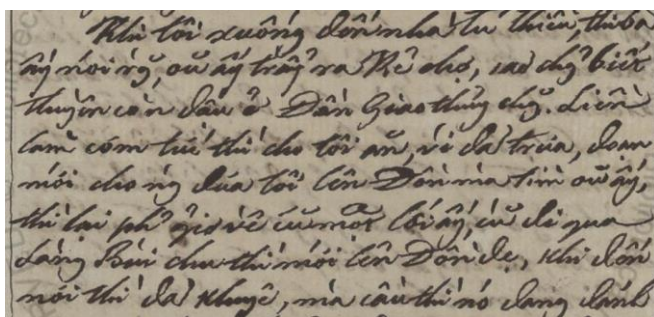 Khi tôi xuống đến nhà tu thiên, thì bà
ấy nói rằ̃, ou᷃ ấy trảy ra Kẻ chợ, sao chả᷃ biết
thuyền còn đâu ở Đồn Giao thủy chă᷃. Liền
làm cơm tức thì cho tôi ăn, vì đã trưa, đoạn
mới cho ng đưa tôi lên Đồn mà tìm ou᷃ ấy,
thì lại phải giở về cũ᷃ một lối ấy, cũ᷃ đi qua
làng Bùi chu thì mới lên Đồn đc, khi đến
nơi thì đã khuya, mà cầu thì nó đang đánh